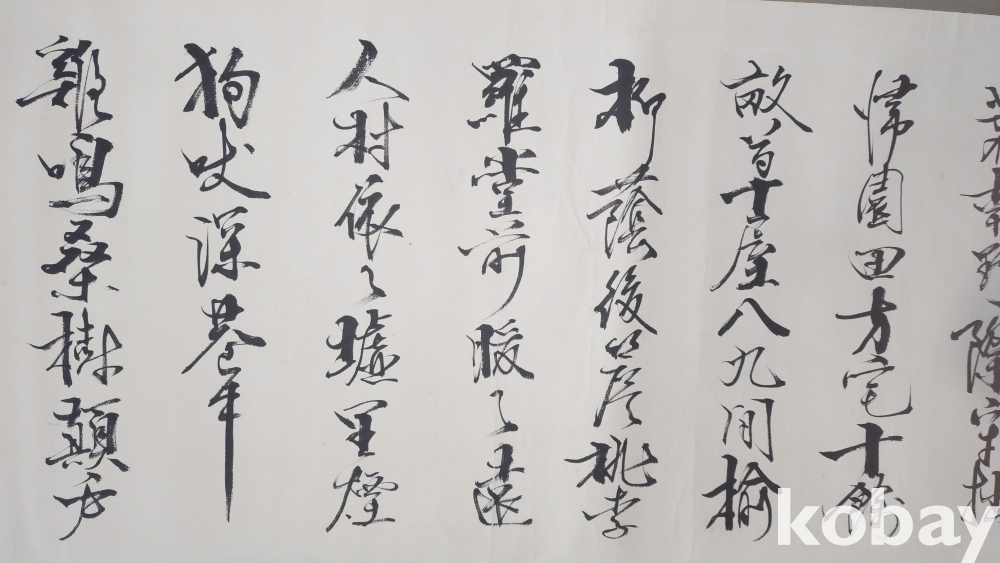 荒南野際守拙
歸園田方宅十餘
畝草屋八九間榆
柳蔭後簷桃李
羅堂前暖〻遠
人村依〻墟里煙
狗吠深巷中
雞鳴桑樹顛戶
kobay